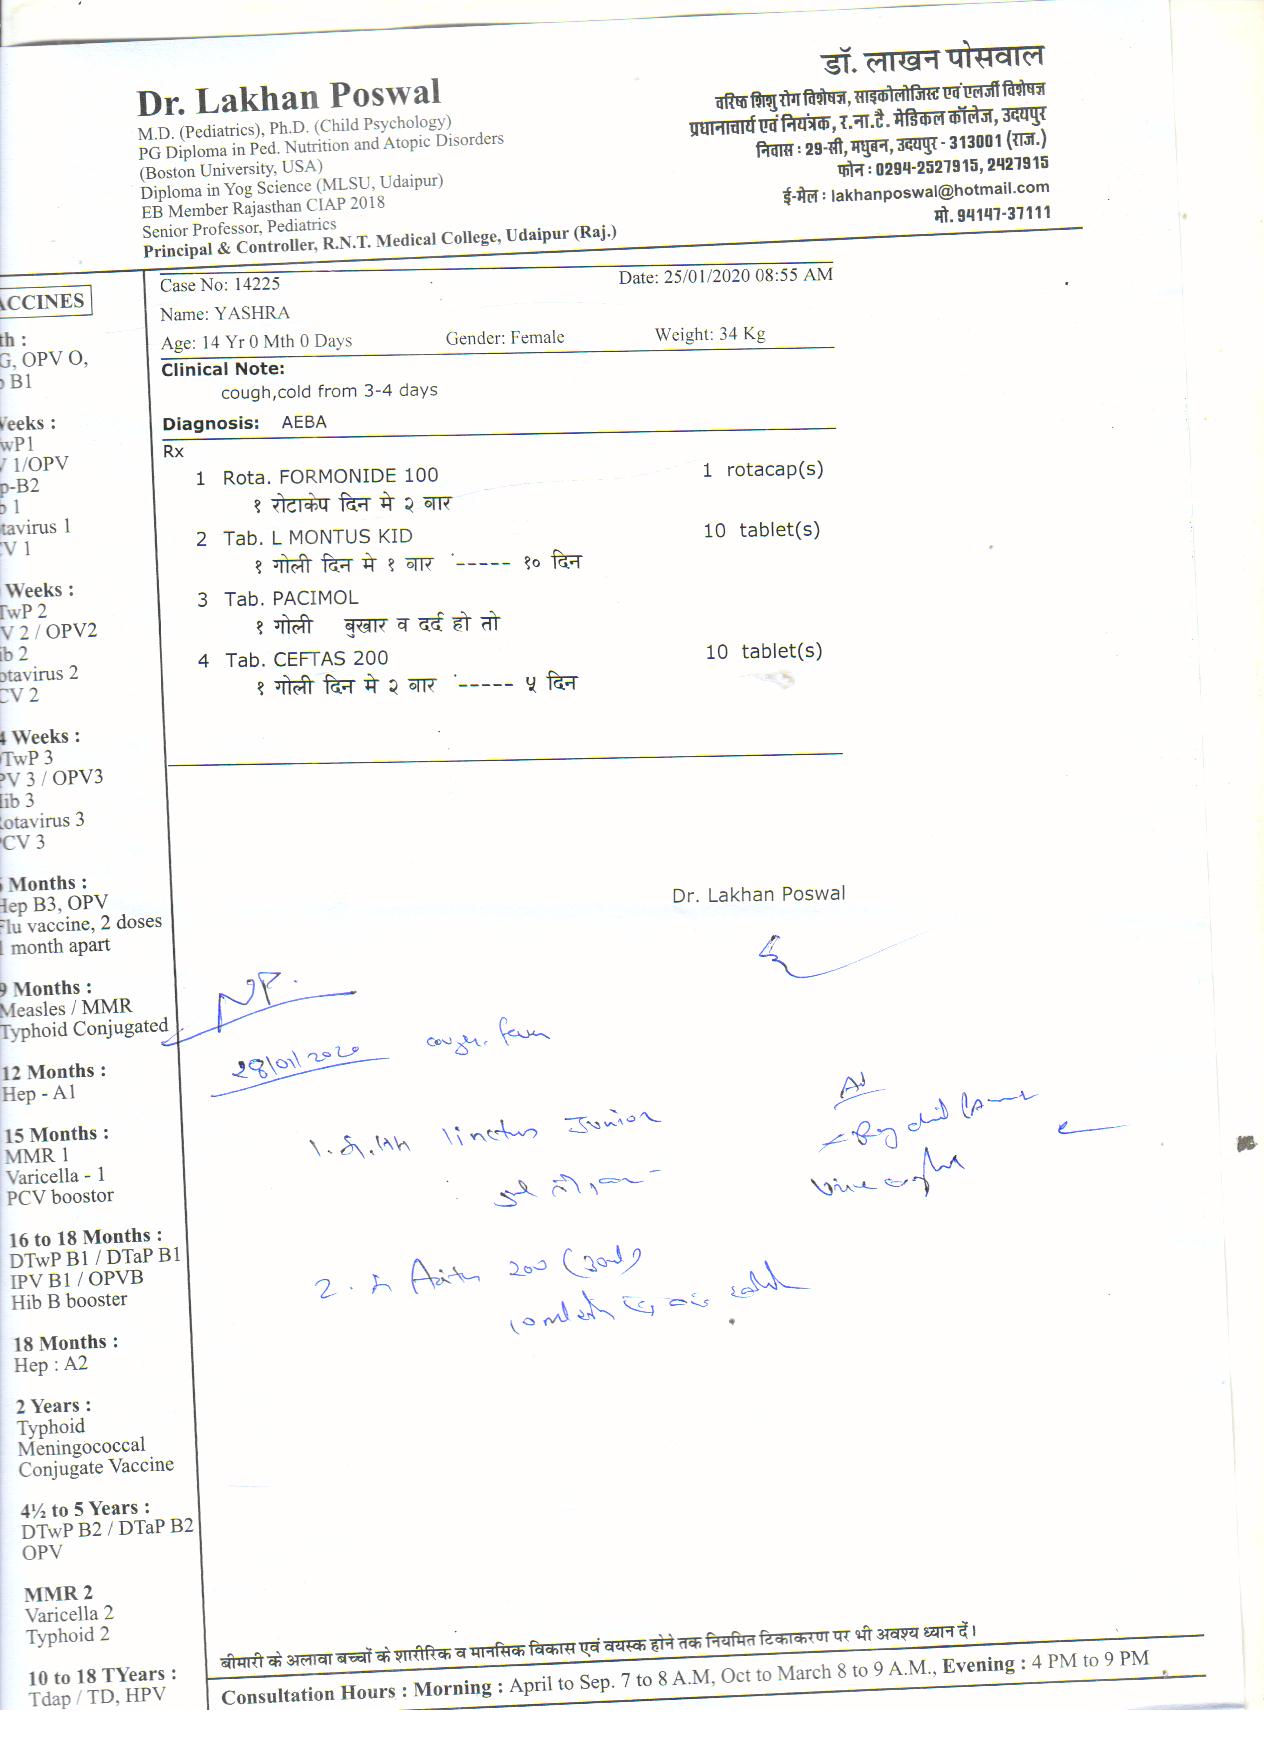 Dr. Lakhan Poswal
M.D. (Pediatrics), Ph.D. (Child Psychology)
PG Diploma in Ped. Nutrition and Atopic Disorders
(Boston University, USA)
Diploma in Yog Science (MLSU, Udaipur)
EB Member Rajasthan CIAP 2018
Senior Professor, Pediatrics
Principal & Controller, R.N.T. Medical College, Udaipur (Raj.)
डॉ. लाखन पोसवाल
वरिष्ठ शिशु रोग विशेषज्ञ, साइकोलोजिस्ट एवं एलर्जी विशेषज्ञ
प्रधानाचार्य एवं नियंत्रक, र.ना.टै. मेडिकल कॉलेज, उदयपुर
निवास : 29-सी, मधुबन, उदयपुर - 313001 (राज.)
फोन : 0294-2527915, 2427915
ई-मेल : lakhanposwal@hotmail.com
मो. 94147-37111
ACCINES
th :
G, OPV O,
B1
Weeks :
wP1
1/OPV
p-B2
1
tavirus 1
V 1
Weeks :
TwP 2
V 2 / OPV2
ib 2
otavirus 2
CV 2
4 Weeks :
TwP 3
PV 3 / OPV3
Hib 3
otavirus 3
PCV 3
Months :
Hep B3, OPV
Flu vaccine, 2 doses
1 month apart
9 Months :
Measles / MMR
Typhoid Conjugated
12 Months :
Hep - A1
15 Months :
MMR 1
Varicella - 1
PCV boostor
16 to 18 Months :
DTwP B1 / DTaP B1
IPV B1 / OPVB
Hib B booster
18 Months :
Hep : A2
2 Years :
Typhoid
Meningococcal
Conjugate Vaccine
4½ to 5 Years :
DTwP B2 / DTaP B2
OPV
MMR 2
Varicella 2
Typhoid 2
10 to 18 TYears :
Tdap / TD, HPV
Case No: 14225 Date: 25/01/2020 08:55 AM
Name: YASHRA
Age: 14 Yr 0 Mth 0 Days Gender: Female Weight: 34 Kg
Clinical Note:
cough,cold from 3-4 days
Diagnosis: AEBA
Rx
1 Rota. FORMONIDE 100 1 rotacap(s)
१ रोटाकेप दिन मे २ बार
2 Tab. L MONTUS KID 10 tablet(s)
१ गोली दिन मे १ बार ----- १० दिन
3 Tab. PACIMOL
१ गोली बुखार व दर्द हो तो
4 Tab. CEFTAS 200 10 tablet(s)
१ गोली दिन मे २ बार ----- ५ दिन
Dr. Lakhan Poswal
NP.
28/01/2020 cough. fever
Linctus Junior
2. 200 (30ml)
बीमारी के अलावा बच्चों के शारीरिक व मानसिक विकास एवं वयस्क होने तक नियमित टिकाकरण पर भी अवश्य ध्यान दें।
Consultation Hours : Morning : April to Sep. 7 to 8 A.M, Oct to March 8 to 9 A.M., Evening : 4 PM to 9 PM